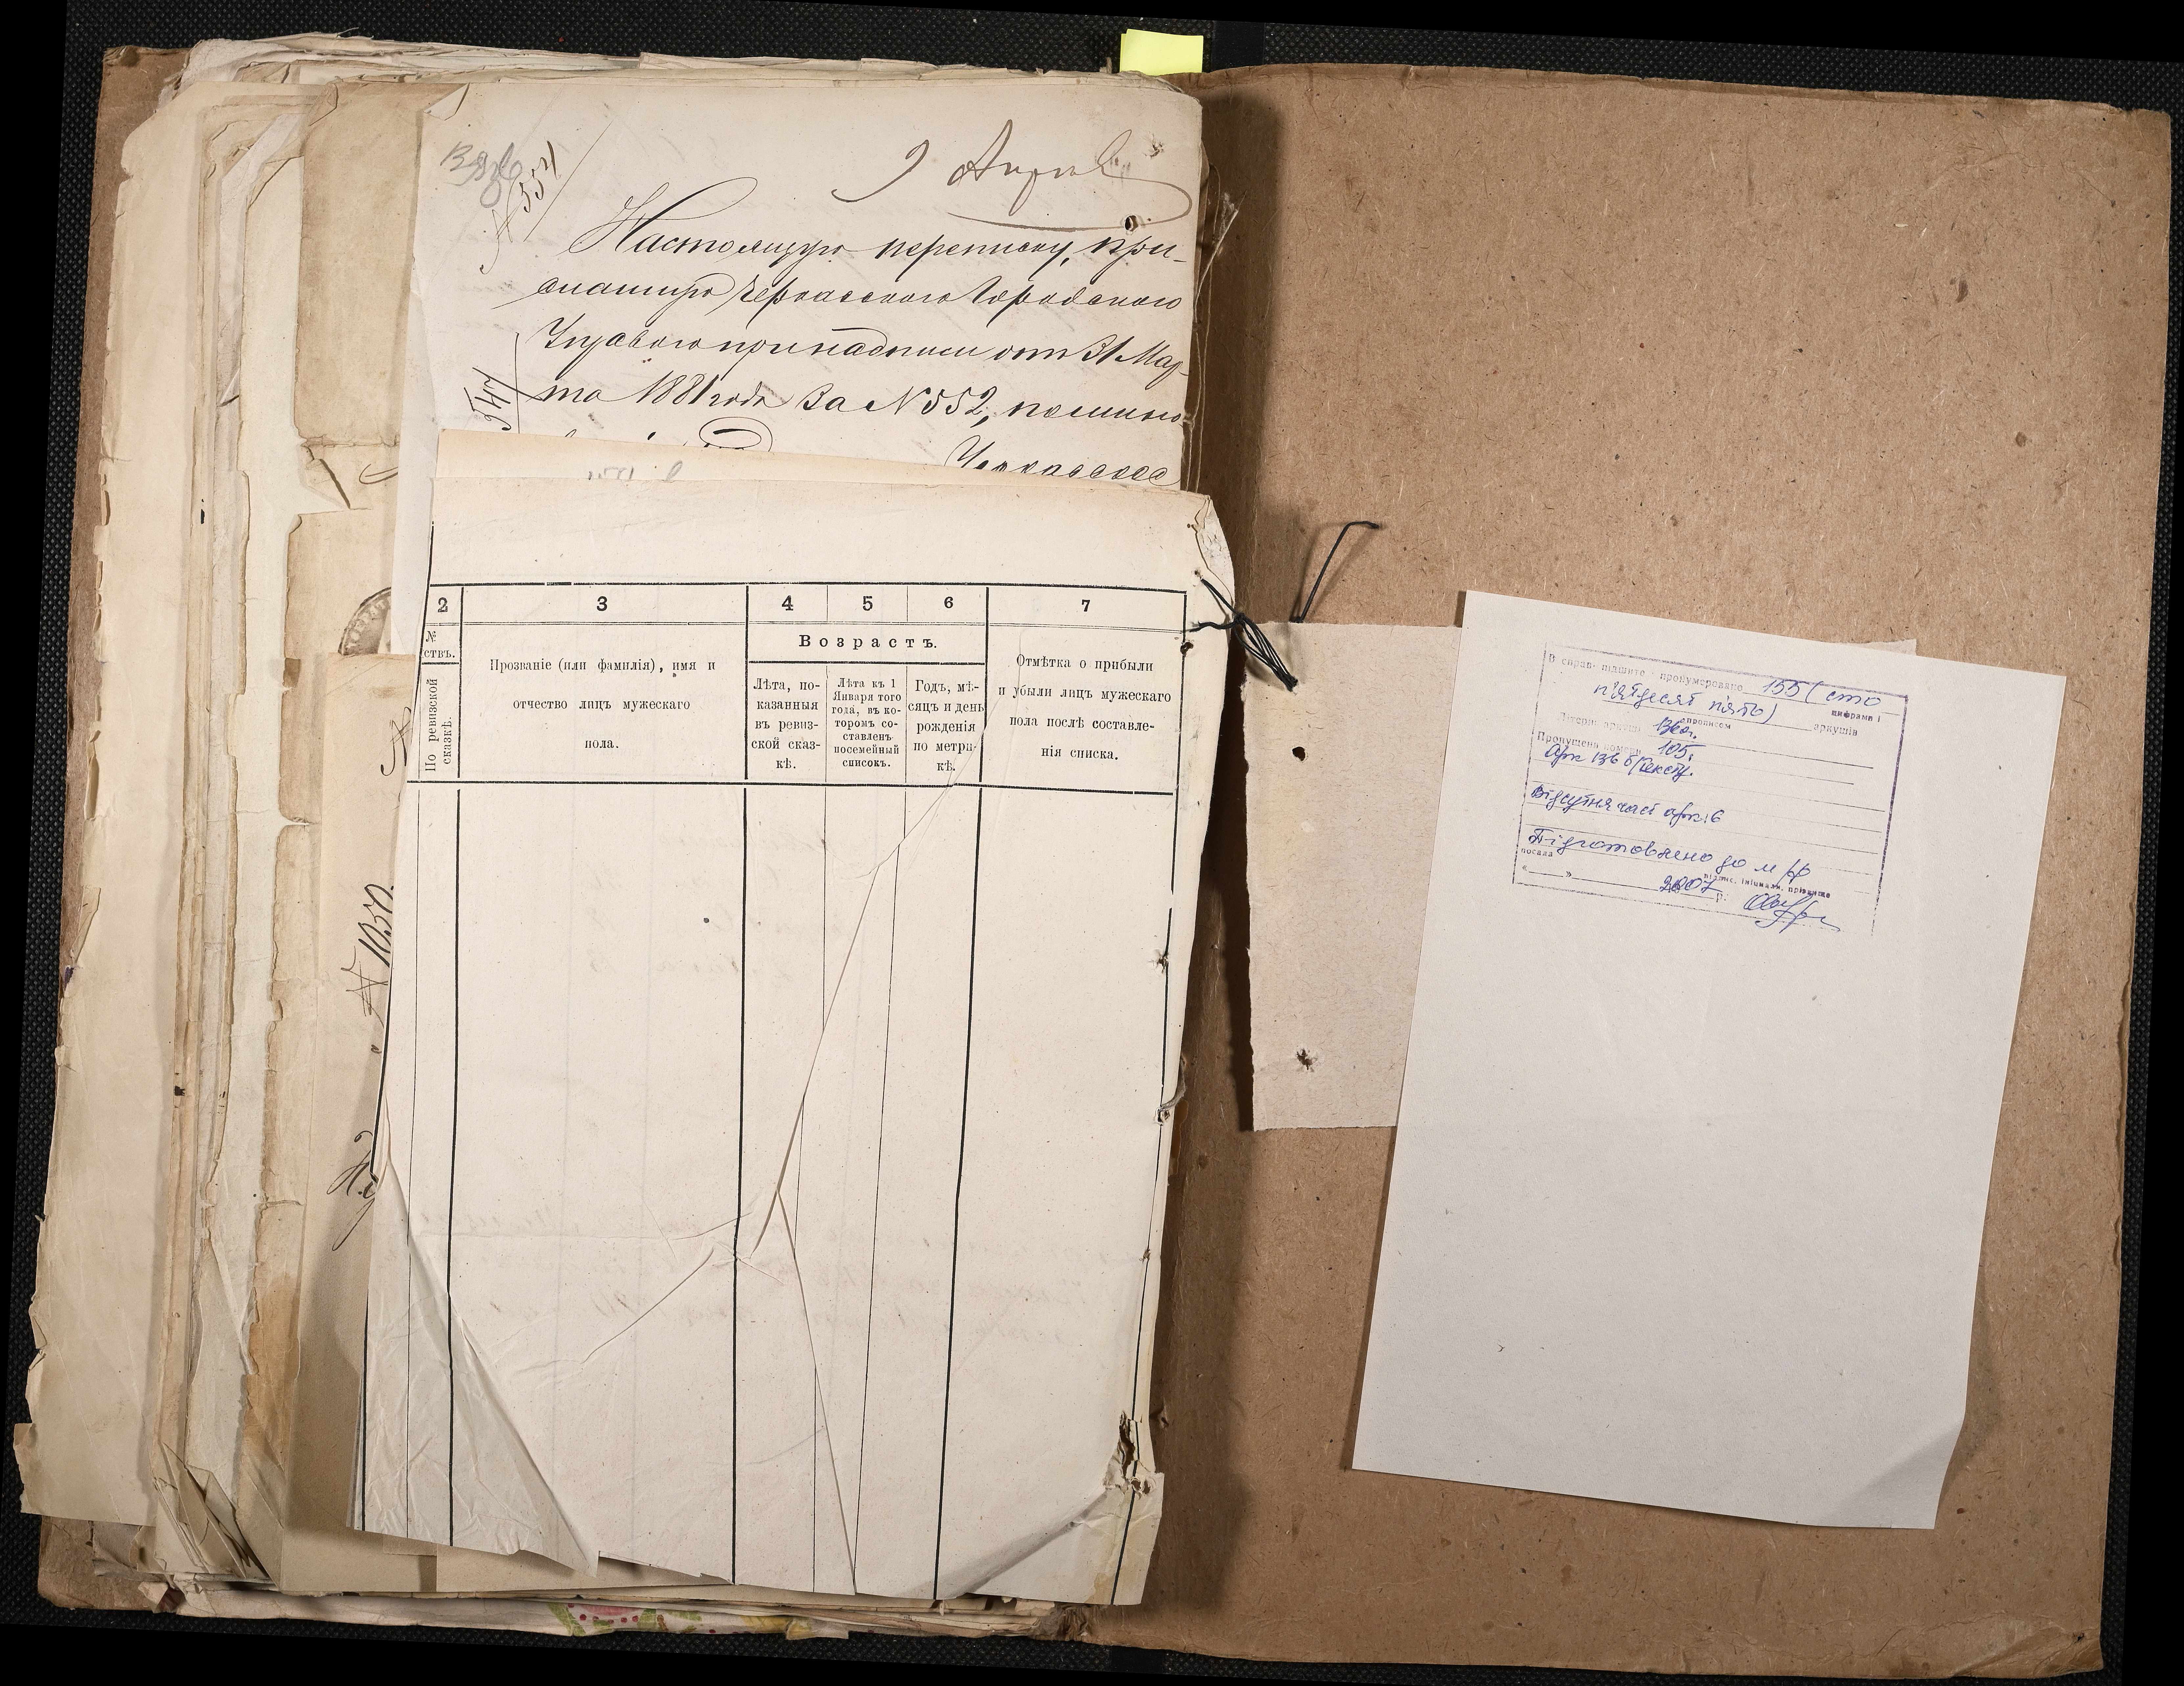 № 554
9 Апрѣл
Настоящую переписку, при-
сланную Черкасского Городскаго
Управою при надписи отъ 31 Мар-
та 1881 года за №552,
547
Черкасское
№ 1050.
2
3
4
5
6
7
№
ствъ.
По ревизской
сказкѣ.
Прозваніе (или фамилія), имя и
отчество лицъ мужескаго
пола.
Возрастъ.
Лѣта, по-
казанныя
въ ревиз-
ской сказ-
кѣ.
Лѣта къ 1
Января того
года, въ ко-
торомъ со-
ставленъ
посемейный
списокъ.
Годъ, мѣ-
сяцъ и день
рожденія
по метри-
кѣ.
Отмѣтка о прибыли
и убыли лицъ мужескаго
пола послѣ составле-
нія списка.
В справі підшито і пронумеровано 155 (сто
п'ятдесят п'ять)
цифрами і
прописом
аркушів
Літерні аркуші 136а.
Пропущені номери 105.
Арк 136 б/тексту.
Відсутня част арк: 6
Підготовлено до м/ф
посада
підпис, ініціали, прізвище
« » 2007 р.